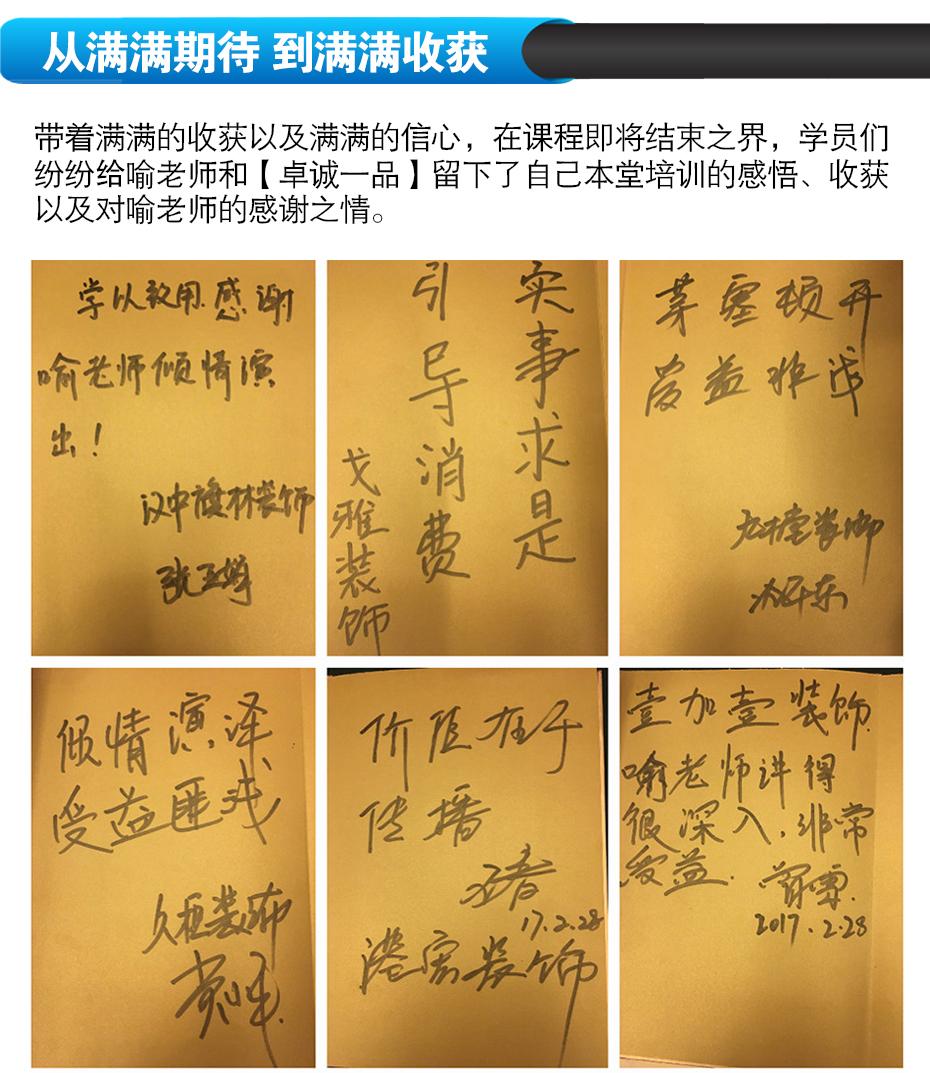 从满满期待 到满满收获
带着满满的收获以及满满的信心，在课程即将结束之界，学员们
纷纷给喻老师和【卓诚一品】留下了自己本堂培训的感悟、收获
以及对喻老师的感谢之情。
学以致用.感谢
喻老师倾情演
出！
汉中 林装饰
实事求是
引导消费
戈雅装饰
茅塞顿开
受益非浅
倾情演泽
受益匪浅
久 装饰
价值在于
传播
17.2.28
港宏装饰
壹加壹装饰
喻老师讲得
很深入,非常
受益.
2017.2.28